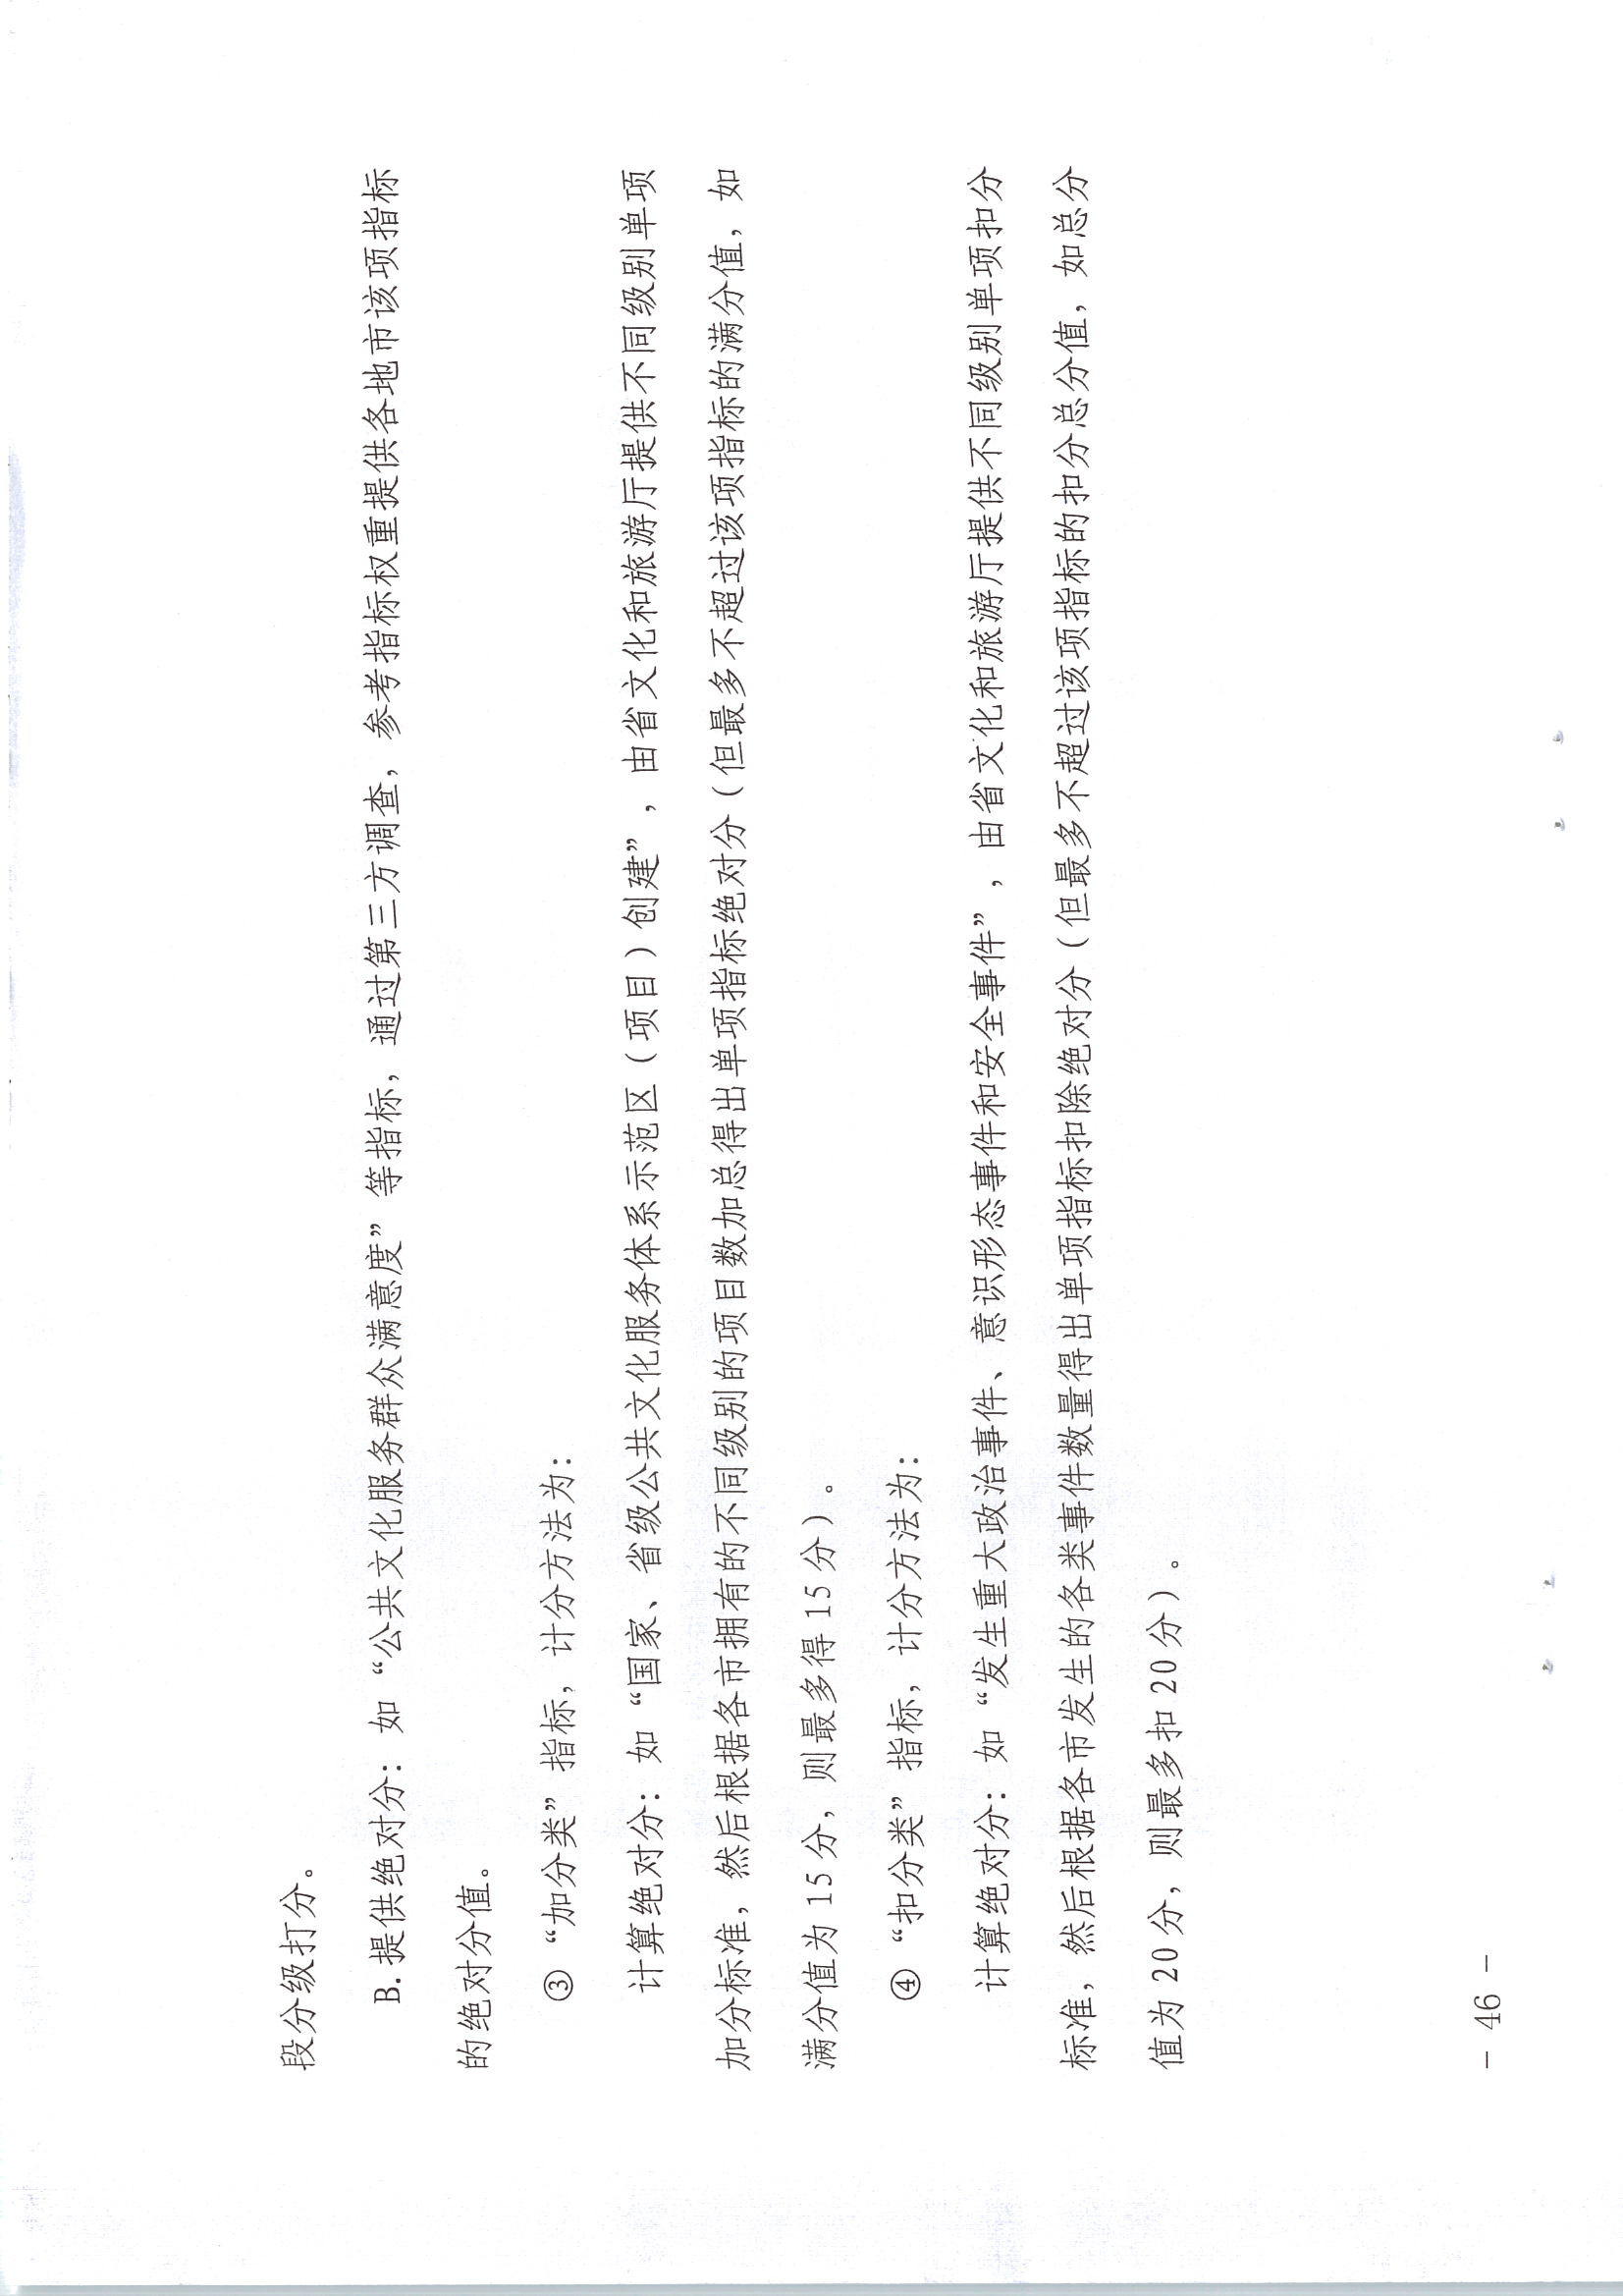 段分级打分。
B. 提供绝对分：如“公共文化服务群众满意度”等指标，通过第三方调查，参考指标权重提供各地市该项指标
的绝对分值。
③ “加分类”指标，计分方法为：
计算绝对分：如“国家、省级公共文化服务体系示范区（项目）创建”，由省文化和旅游厅提供不同级别单项
加分标准，然后根据各市拥有的不同级别的项目数加总得出单项指标绝对分（但最多不超过该项指标的满分值，如
满分值为 15 分，则最多得 15 分）。
④ “扣分类”指标，计分方法为：
计算绝对分：如“发生重大政治事件、意识形态事件和安全事件”，由省文化和旅游厅提供不同级别单项扣分
标准，然后根据各市发生的各类事件数量得出单项指标扣除绝对分（但最多不超过该项指标的扣分总分值，如总分
值为 20 分，则最多扣 20 分）。
— 46 —